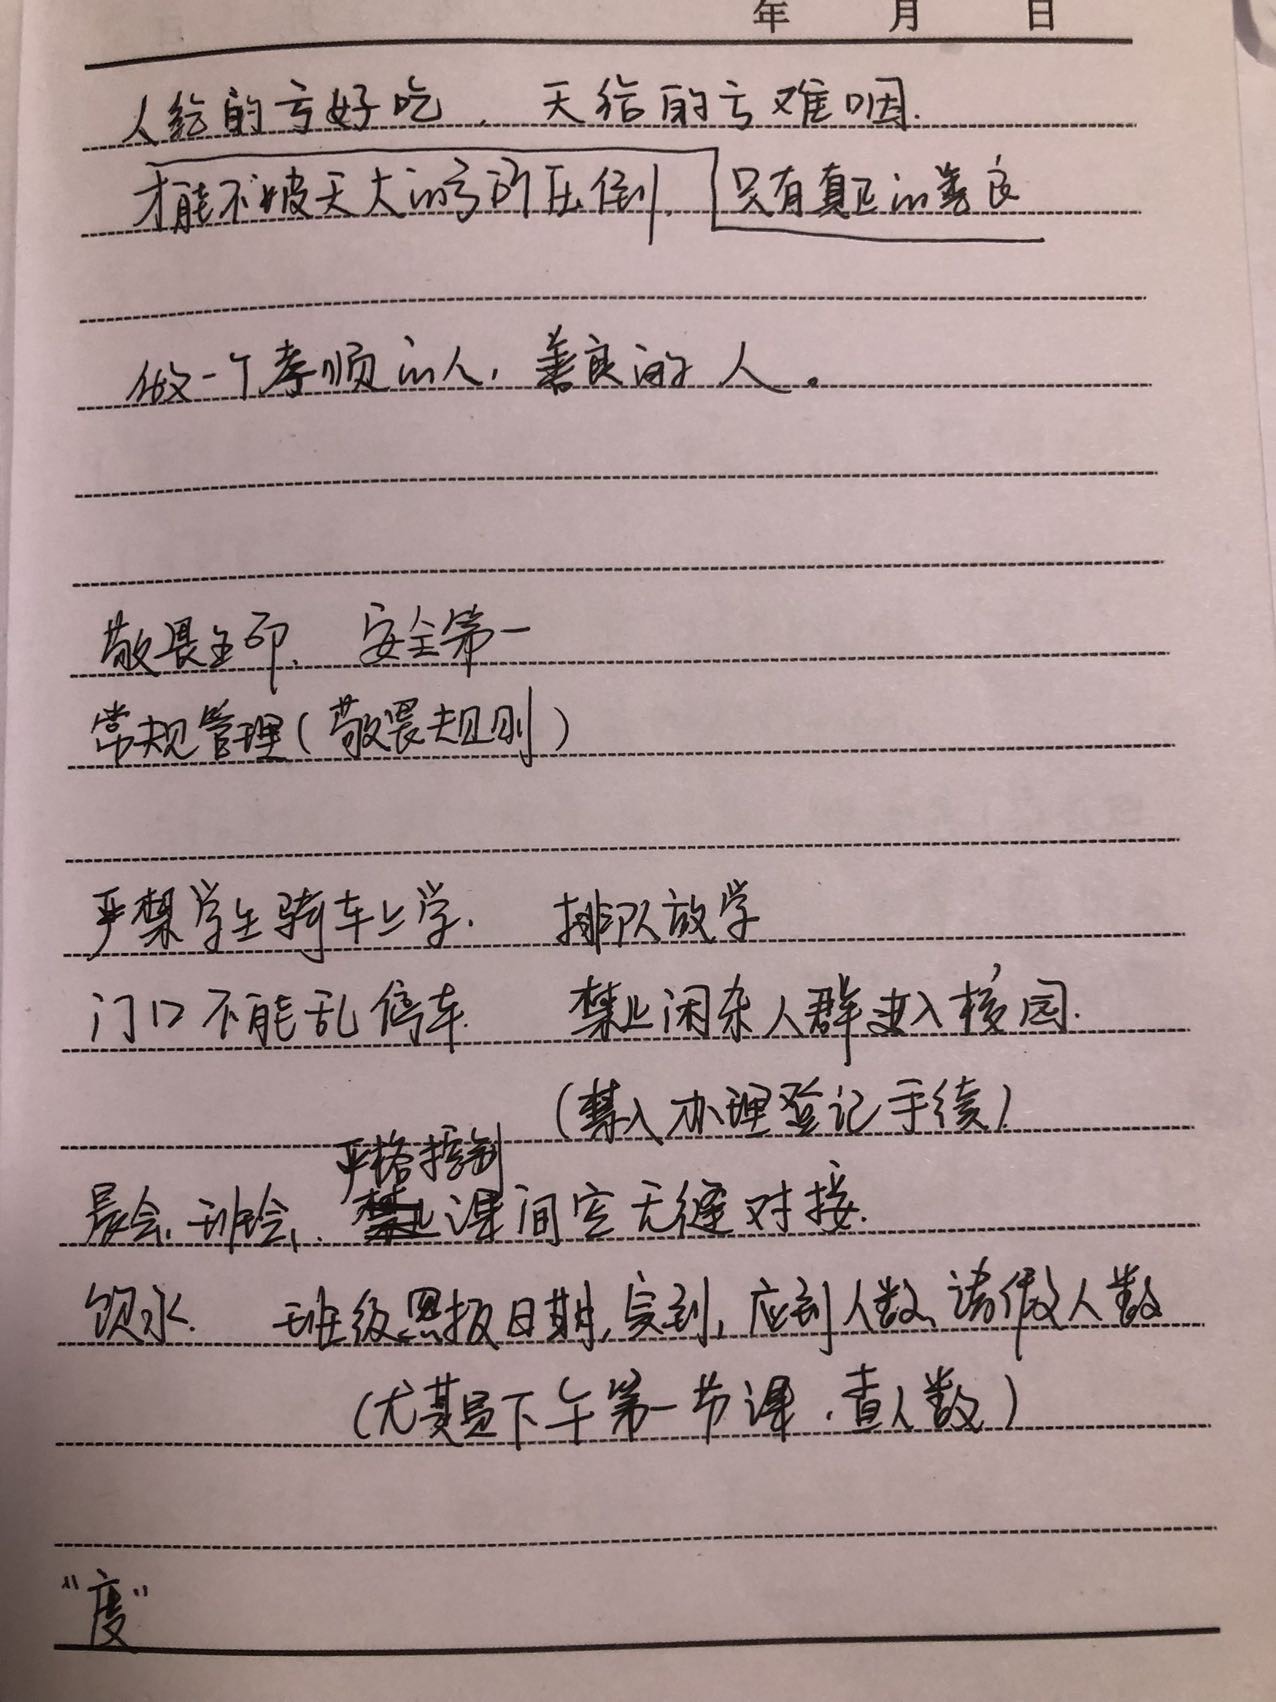 年 月 日
人给的亏好吃，天给的亏难咽.
才能不被天大的亏所压倒. 只有真正的善良
做一个孝顺的人，善良的人。
敬畏生命. 安全第一
常规管理(敬畏规则)
严禁学生骑车上学. 排队放学
门口不能乱停车. 禁止闲杂人群进入校园.
(禁入办理登记手续)
严格控制
晨会、班会、禁止课间空无缝对接.
饮水. 班级黑板日期,实到,应到人数、请假人数
(尤其是下午第一节课.查人数)
“度”